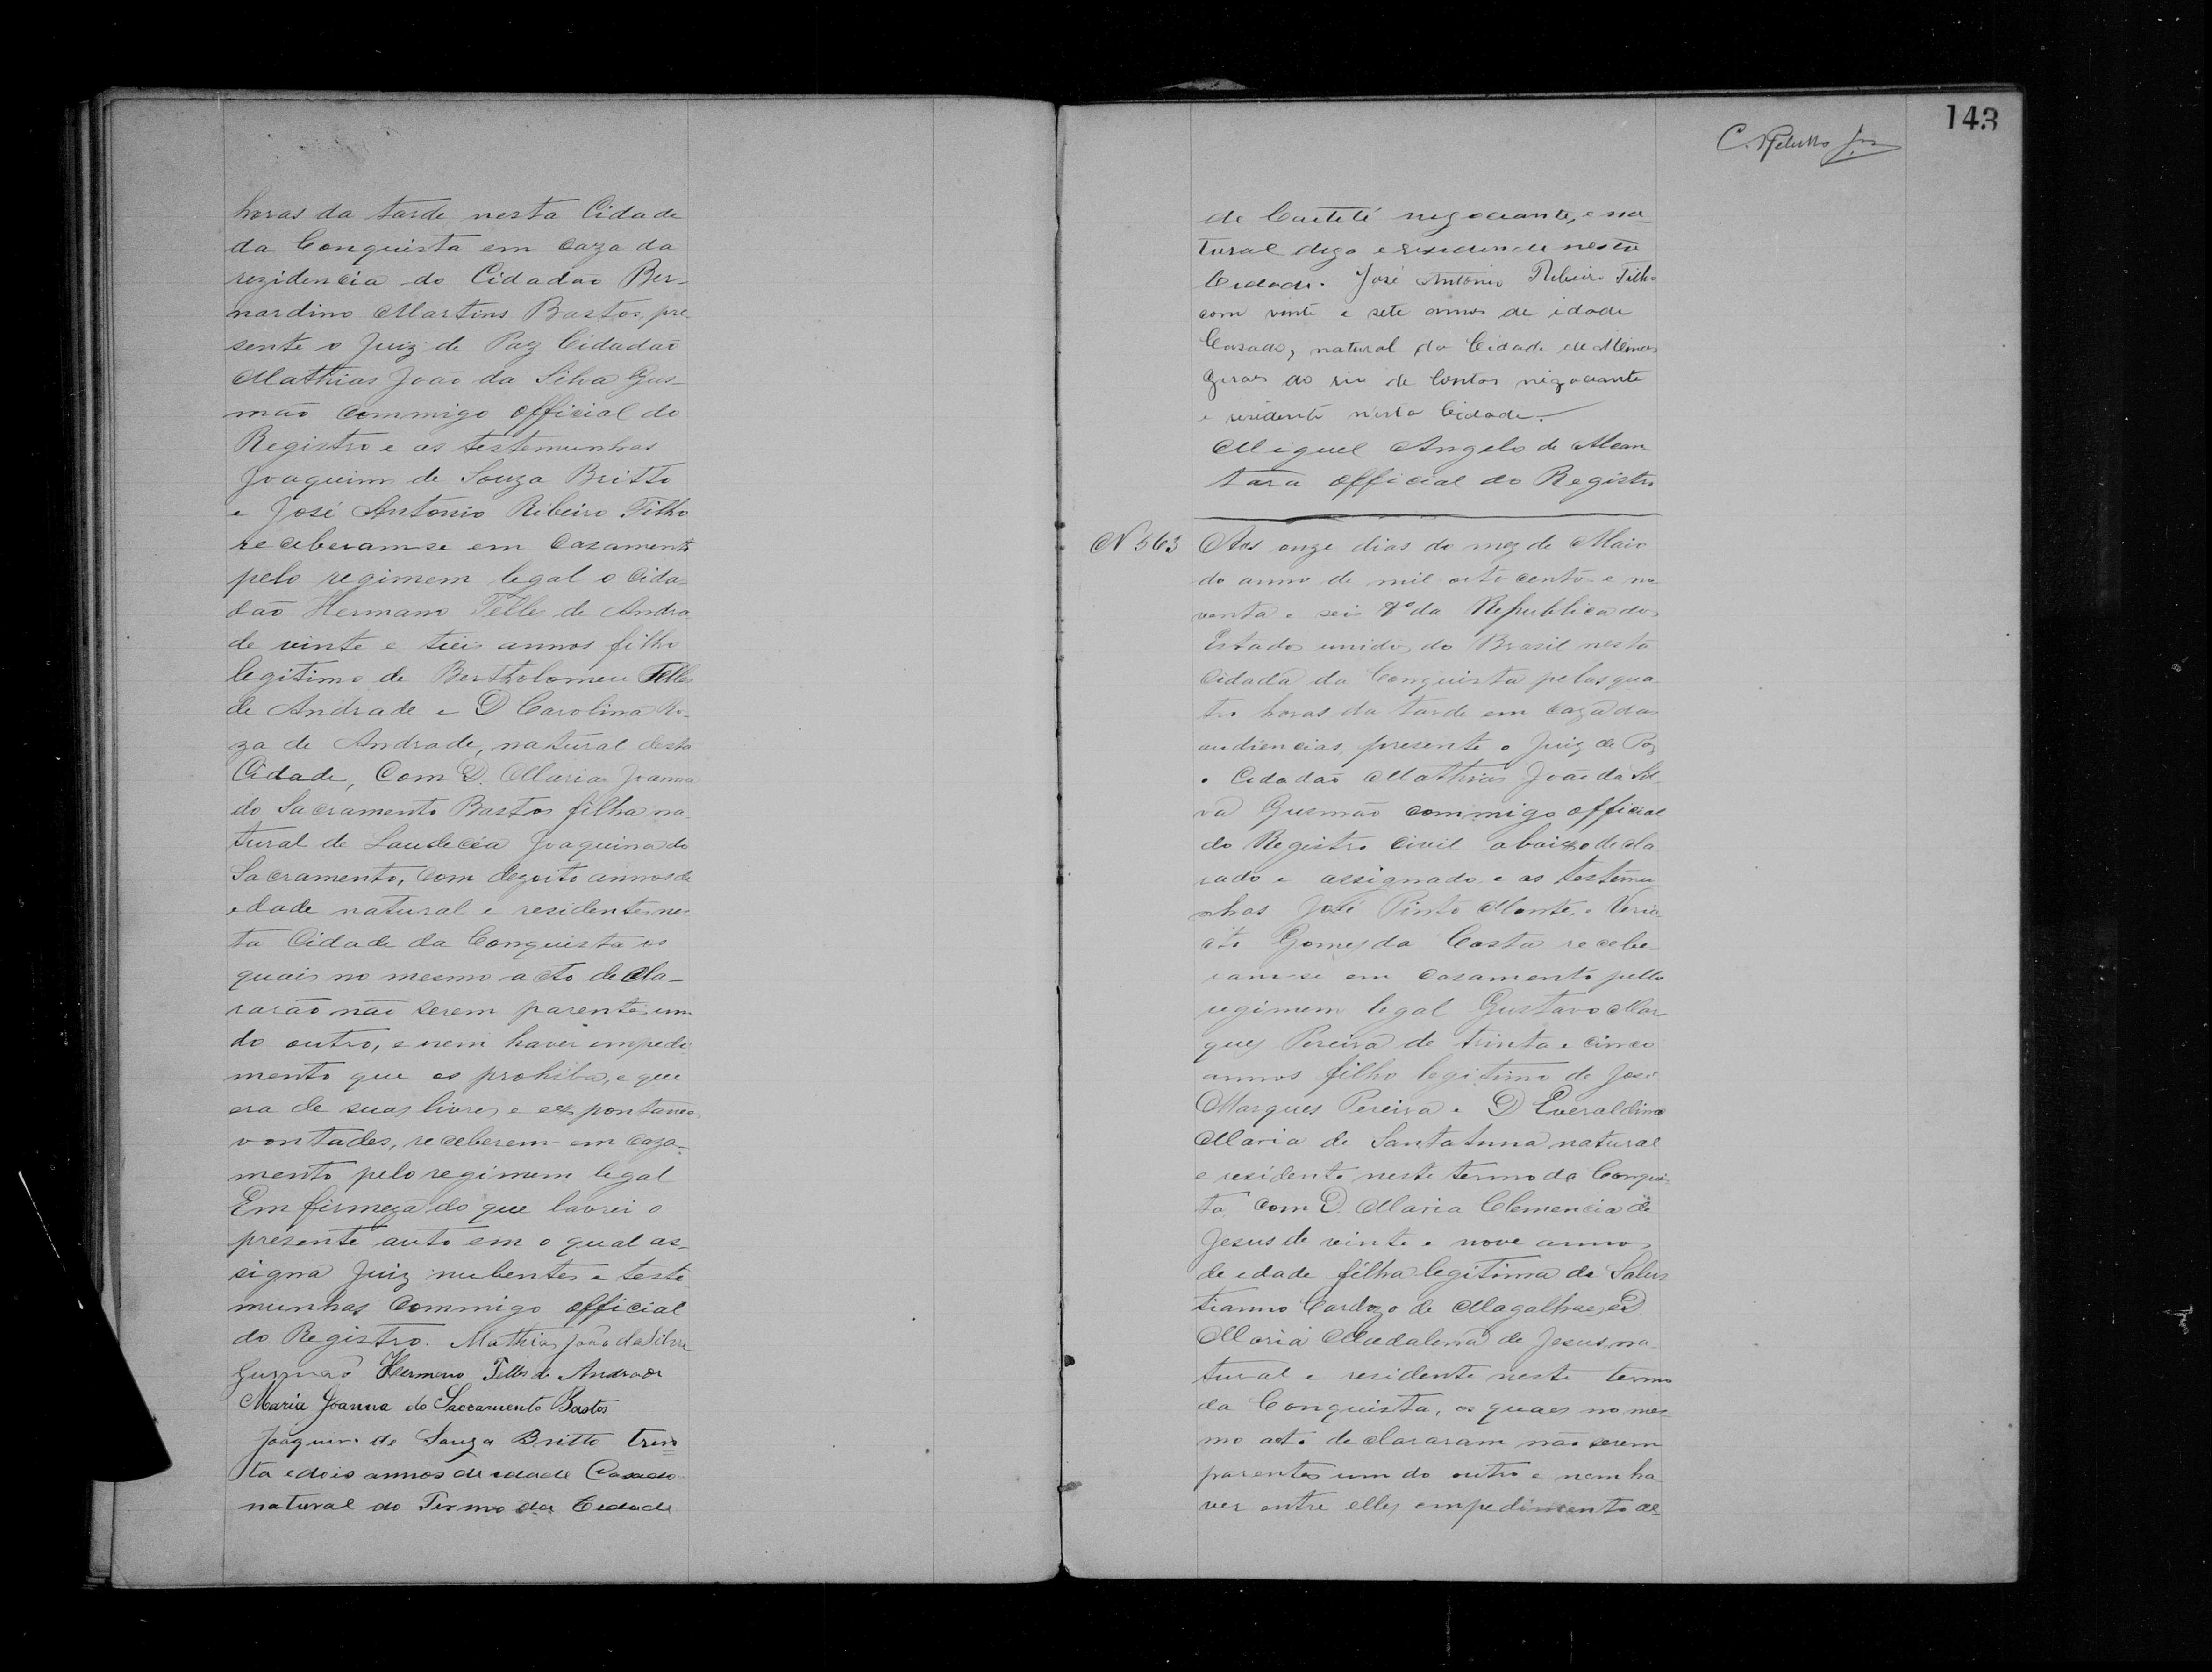 horas da tarde nesta Cidade
da Conquista em caza da
rezidencia do Cidadão Ber-
nardino Martins Bastos, pre-
sente o Juiz de Paz Cidadão
Mathias João da Silva Gus-
mão commigo official do
Registro e as testemunhas
Joaquim de Souza Britto
e José Antonio Ribeiro Filho
receberam-se em cazamento
pelo regimem legal o cida-
dão Hermano Telles de Andra
de vinte e treis annos filho
legitimo de Bertholomeu Telles
de Andrade e D Carolina Ro-
za de Andrade, natural desta
Cidade, Com D. Maria Joanna
do Sacramento Bastos filha na
tural de Laudecéa Joaquina do
Sacramento, com dezoito annos de
edade natural e residentes nes
ta Cidade da Conquista os
quais no mesmo acto decla-
rarão não serem parentes um
do outro, e nem haver impedi-
mento que os prohiba, e que
era de suas livres e espontaneas
vontades, receberem-em caza-
mento pelo regimem legal
Em firmeza do que lavrei o
presente auto em o qual as-
signa Juiz nubentes e teste
munhas commigo official
do Registro. Mathias João da Silva
Gusmão Hermano Telles de Andrade
Maria Joanna do Saccramento Bastos
Joaquim de Souza Britto trin
ta e dois annos de idade Casado
natural do Termo da Cidade
143
de Caeteté negociante, e na-
tural digo e residende nesta
Cidade. José Antonio Ribeiro Filho
com vinte e sete annos de idade
Casado, natural da Cidade de Minas
Geraes do rio de Contas negociante
e residente n'esta Cidade.
Miguel Angelo de Alcan
tara official do Registro
N 563 Aos onze dias do mez de Maio
do anno de mil oito centos e no
venta e seis 7º da Republica dos
Estados unidos do Brasil nesta
Cidada da Conquista pelas qua
tro horas da tarde em caza das
audiencias, presente o Juiz de Paz
o Cidadão Mathias João da Sil
va Gusmão commigo official
do Registro civil abaixo decla
rado e assignado e as testemu
nhas José Pinto Monte, e
Gomes da Costa recebe
ram-se em casamento pello
regimem legal Gustavo Mar
ques Pereira de trinta e cinco
annos filho legitimo de José
Marques Pereira e D Everaldina
Maria de Santanna natural
e residente neste termo da Conquis-
ta, com D. Maria Clemencia de
Jesus de vinte e nove annos
de edade filha legitima de Salus
tianno Cardozo de Magalhaes e D
Maria Madalena de Jesus, na-
tural e residente neste termo
da Conquista, os quaes no mes-
mo acto declararam não serem
parentes um do outro e nem ha
ver entre elles empedimento al-